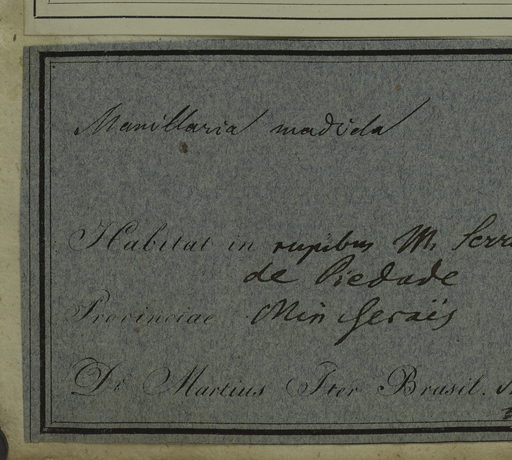 Maxillaria madida
Habitat in rupibus M. Serra
de Piedade
Provinciae Min Geraës
Dr Martius Iter Brasil.